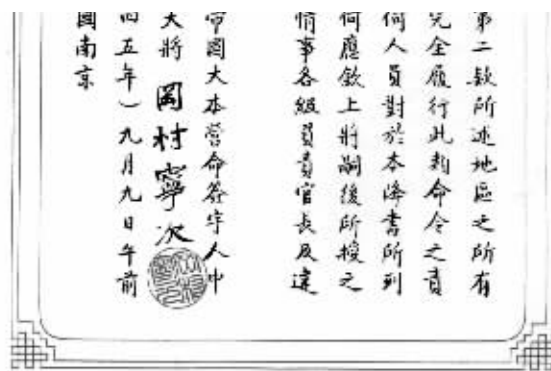 第二款所述地區之所有
完全履行此類命令之責
何人員對於本降書所列
何應欽上將嗣後所授之
情事各級負責官長及違
帝國大本營命簽字人中
大將 岡村寧次
四五年）九月九日午前
國南京